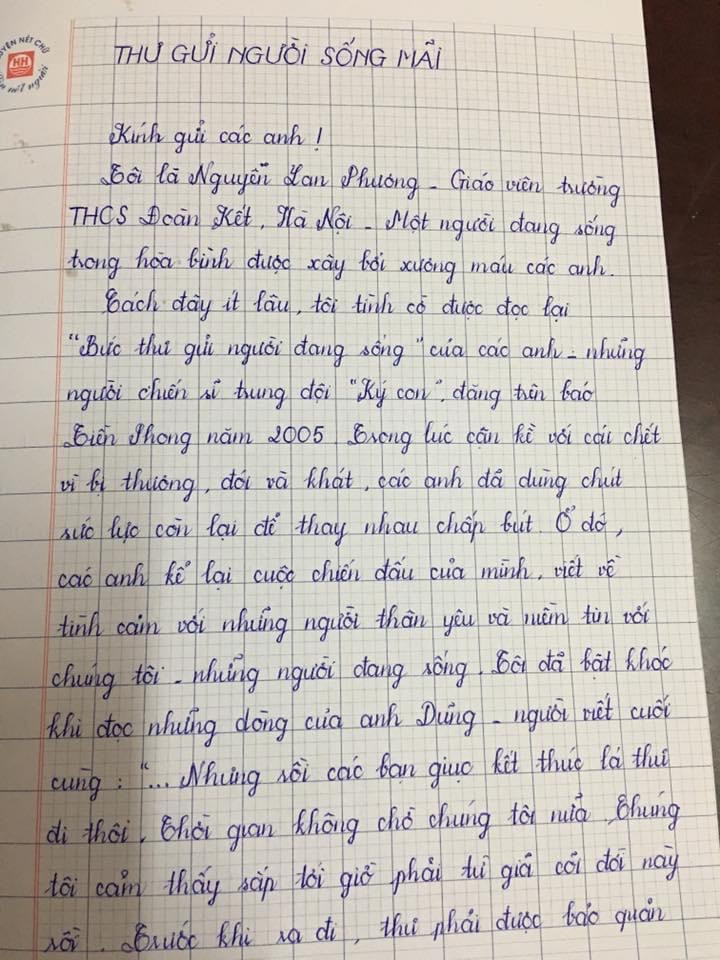 LUYỆN NẾT CHỮ
HH
nết người
THƯ GỬI NGƯỜI SỐNG MÃI
Kính gửi các anh !
Tôi là Nguyễn Lan Phương - Giáo viên trường
THCS Đoàn Kết, Hà Nội - Một người đang sống
trong hòa bình được xây bởi xương máu các anh.
Cách đây ít lâu, tôi tình cờ được đọc lại
"Bức thư gửi người đang sống" của các anh - những
người chiến sĩ trung đội "Ký con", đăng trên báo
Tiền Phong năm 2005. Trong lúc cận kề với cái chết
vì bị thương, đói và khát, các anh đã dùng chút
sức lực còn lại để thay nhau chấp bút. Ở đó,
các anh kể lại cuộc chiến đấu của mình, viết về
tình cảm với những người thân yêu và niềm tin với
chúng tôi - những người đang sống. Tôi đã bật khóc
khi đọc những dòng của anh Dũng - người viết cuối
cùng : "... Nhưng rồi các bạn giục kết thúc lá thư
đi thôi. Thời gian không chờ chúng tôi nữa. Chúng
tôi cảm thấy sắp tới giờ phải từ giã cõi đời này
rồi. Trước khi ra đi, thư phải được bảo quản